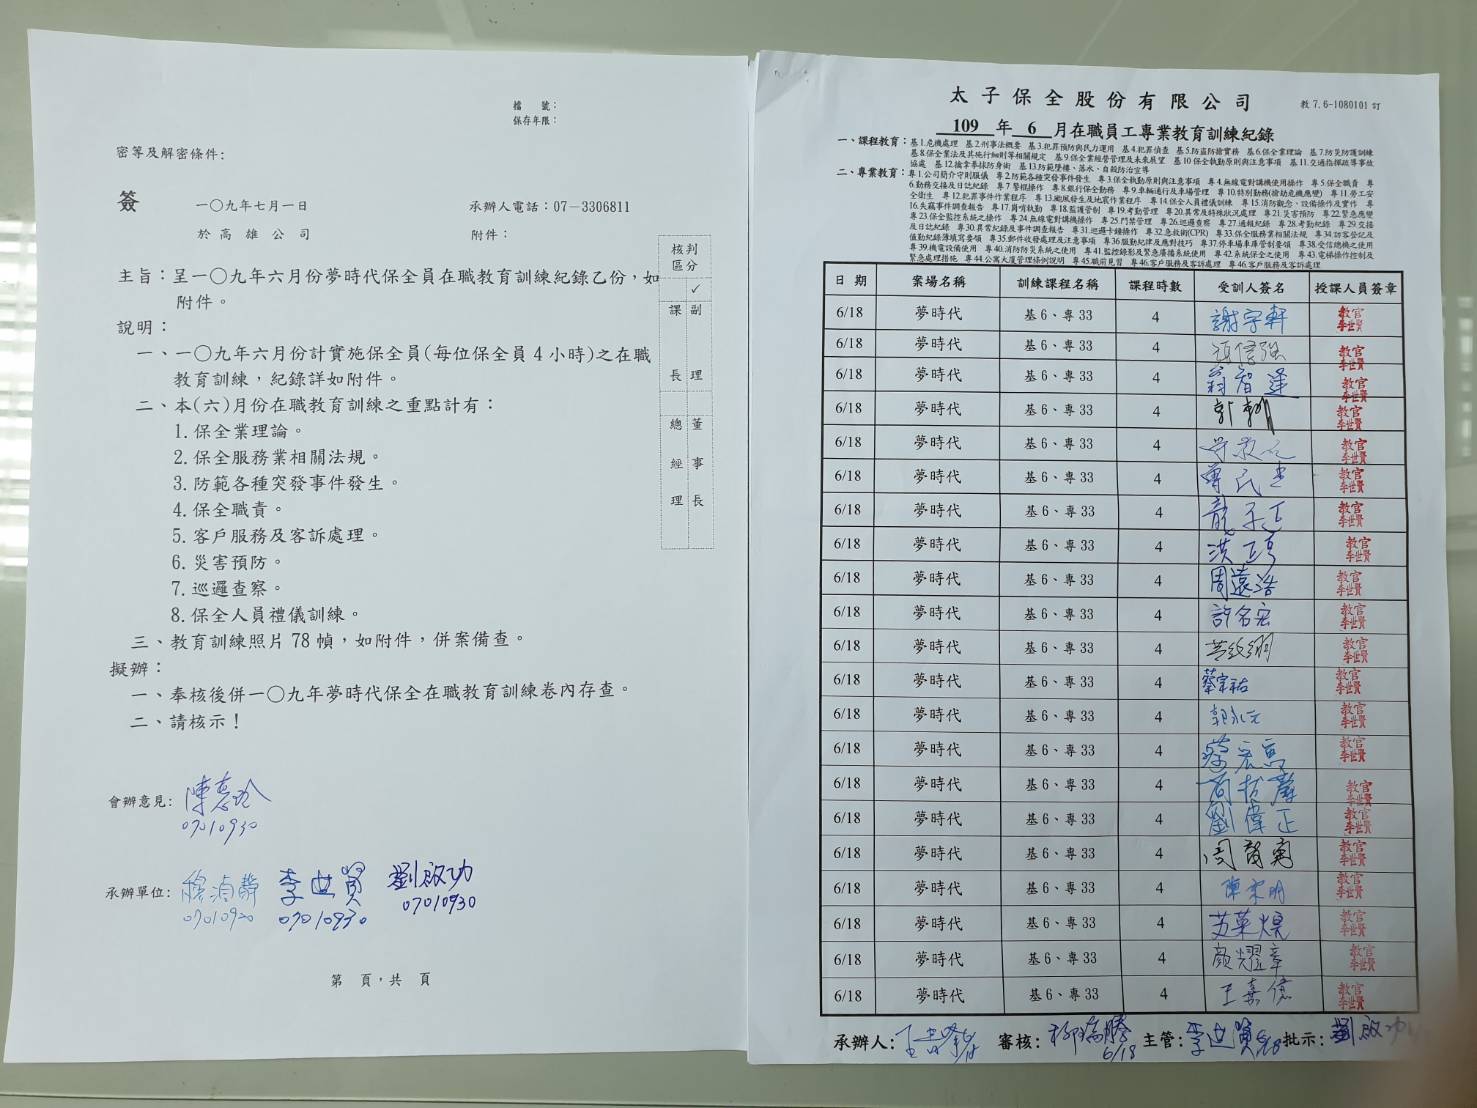 檔　號：
保存年限：
密等及解密條件：
簽　一〇九年七月一日　承辦人電話：07－3306811
於高雄公司　附件：
核判
區分
✓
課長
副理
總經理
董事長
主旨：呈一〇九年六月份夢時代保全員在職教育訓練紀錄乙份，如
附件。
說明：
一、一〇九年六月份計實施保全員(每位保全員4小時)之在職
教育訓練，紀錄詳如附件。
二、本(六)月份在職教育訓練之重點計有：
1.保全業理論。
2.保全服務業相關法規。
3.防範各種突發事件發生。
4.保全職責。
5.客戶服務及客訴處理。
6.災害預防。
7.巡邏查察。
8.保全人員禮儀訓練。
三、教育訓練照片78幀，如附件，併案備查。
擬辦：
一、奉核後併一〇九年夢時代保全在職教育訓練卷內存查。
二、請核示！
會辦意見：
07010930
承辦單位：李世賢 劉啟功
07010920 07010930 07010930
第　頁，共　頁
太子保全股份有限公司　教7.6-1080101訂
109年6月在職員工專業教育訓練紀錄
一、課程教育：基1.危機處理 基2.刑事法概要 基3.犯罪預防與民力運用 基4.犯罪偵查 基5.防盜防搶實務 基6.保全業理論 基7.防災防護訓練
基8.保全業法及其施行細則等相關規定 基9.保全業經營管理及未來展望 基10.保全執勤原則與注意事項 基11.交通指揮疏導事故
協處 基12.擒拿拳抹防身術 基13.防範墜樓、落水、自殺防治宣導
二、專業教育：專1.公司簡介守則服儀 專2.防範各種突發事件發生 專3.保全執勤原則與注意事項 專4.無線電對講機使用操作 專5.保全職責 專
6.勤務交接及日誌紀錄 專7.警棍操作 專8.銀行保全勤務 專9.車輛通行及車場管理 專10.特別勤務(臨劫危機應變) 專11.勞工安
全衛生 專12.犯罪事件作業程序 專13.颱風發生及地震作業程序 專14.保全人員禮儀訓練 專15.消防觀念、設備操作及實作 專
16.失竊事件調查報告 專17.崗哨執勤 專18.監護管制 專19.考勤管理 專20.異常及特殊狀況處理 專21.災害預防 專22.緊急應變
專23.保全監控系統之操作 專24.無線電對講機操作 專25.門禁管理 專26.巡邏查察 專27.通報紀錄 專28.考勤紀錄 專29.交接
及日誌紀錄 專30.異常紀錄及事件調查報告 專31.巡邏卡鐘操作 專32.急救術(CPR) 專33.保全服務業相關法規 專34.訪客登記及
值勤紀錄簿填寫要領 專35.郵件收發處理及注意事項 專36.服勤紀律及應對技巧 專37.停車場車庫管制要領 專38.受信總機之使用
專39.機電設備使用 專40.消防防災系統之使用 專41.監控錄影及緊急廣播系統使用 專42.系統保全之使用 專43.電梯操作控制及
緊急處理措施 專44.公寓大廈管理條例說明 專45.職前見習 專46.客戶服務及客訴處理 專46.客戶服務及客訴處理
日期　案場名稱　訓練課程名稱　課程時數　受訓人簽名　授課人員簽章
6/18　夢時代　基6、專33　4　謝宇軒　教官李世賢
6/18　夢時代　基6、專33　4　教官李世賢
6/18　夢時代　基6、專33　4　翁智逢　教官李世賢
6/18　夢時代　基6、專33　4　教官李世賢
6/18　夢時代　基6、專33　4　教官李世賢
6/18　夢時代　基6、專33　4　教官李世賢
6/18　夢時代　基6、專33　4　教官李世賢
6/18　夢時代　基6、專33　4　教官李世賢
6/18　夢時代　基6、專33　4　周遠浩　教官李世賢
6/18　夢時代　基6、專33　4　許名宏　教官李世賢
6/18　夢時代　基6、專33　4　教官李世賢
6/18　夢時代　基6、專33　4　蔡宗祐　教官李世賢
6/18　夢時代　基6、專33　4　教官李世賢
6/18　夢時代　基6、專33　4　教官李世賢
6/18　夢時代　基6、專33　4　教官李世賢
6/18　夢時代　基6、專33　4　劉偉正　教官李世賢
6/18　夢時代　基6、專33　4　教官李世賢
6/18　夢時代　基6、專33　4　教官李世賢
6/18　夢時代　基6、專33　4　教官李世賢
6/18　夢時代　基6、專33　4　顏耀章　教官李世賢
6/18　夢時代　基6、專33　4　王嘉億　教官李世賢
承辦人：　審核：6/18　主管：李世賢　批示：劉啟功